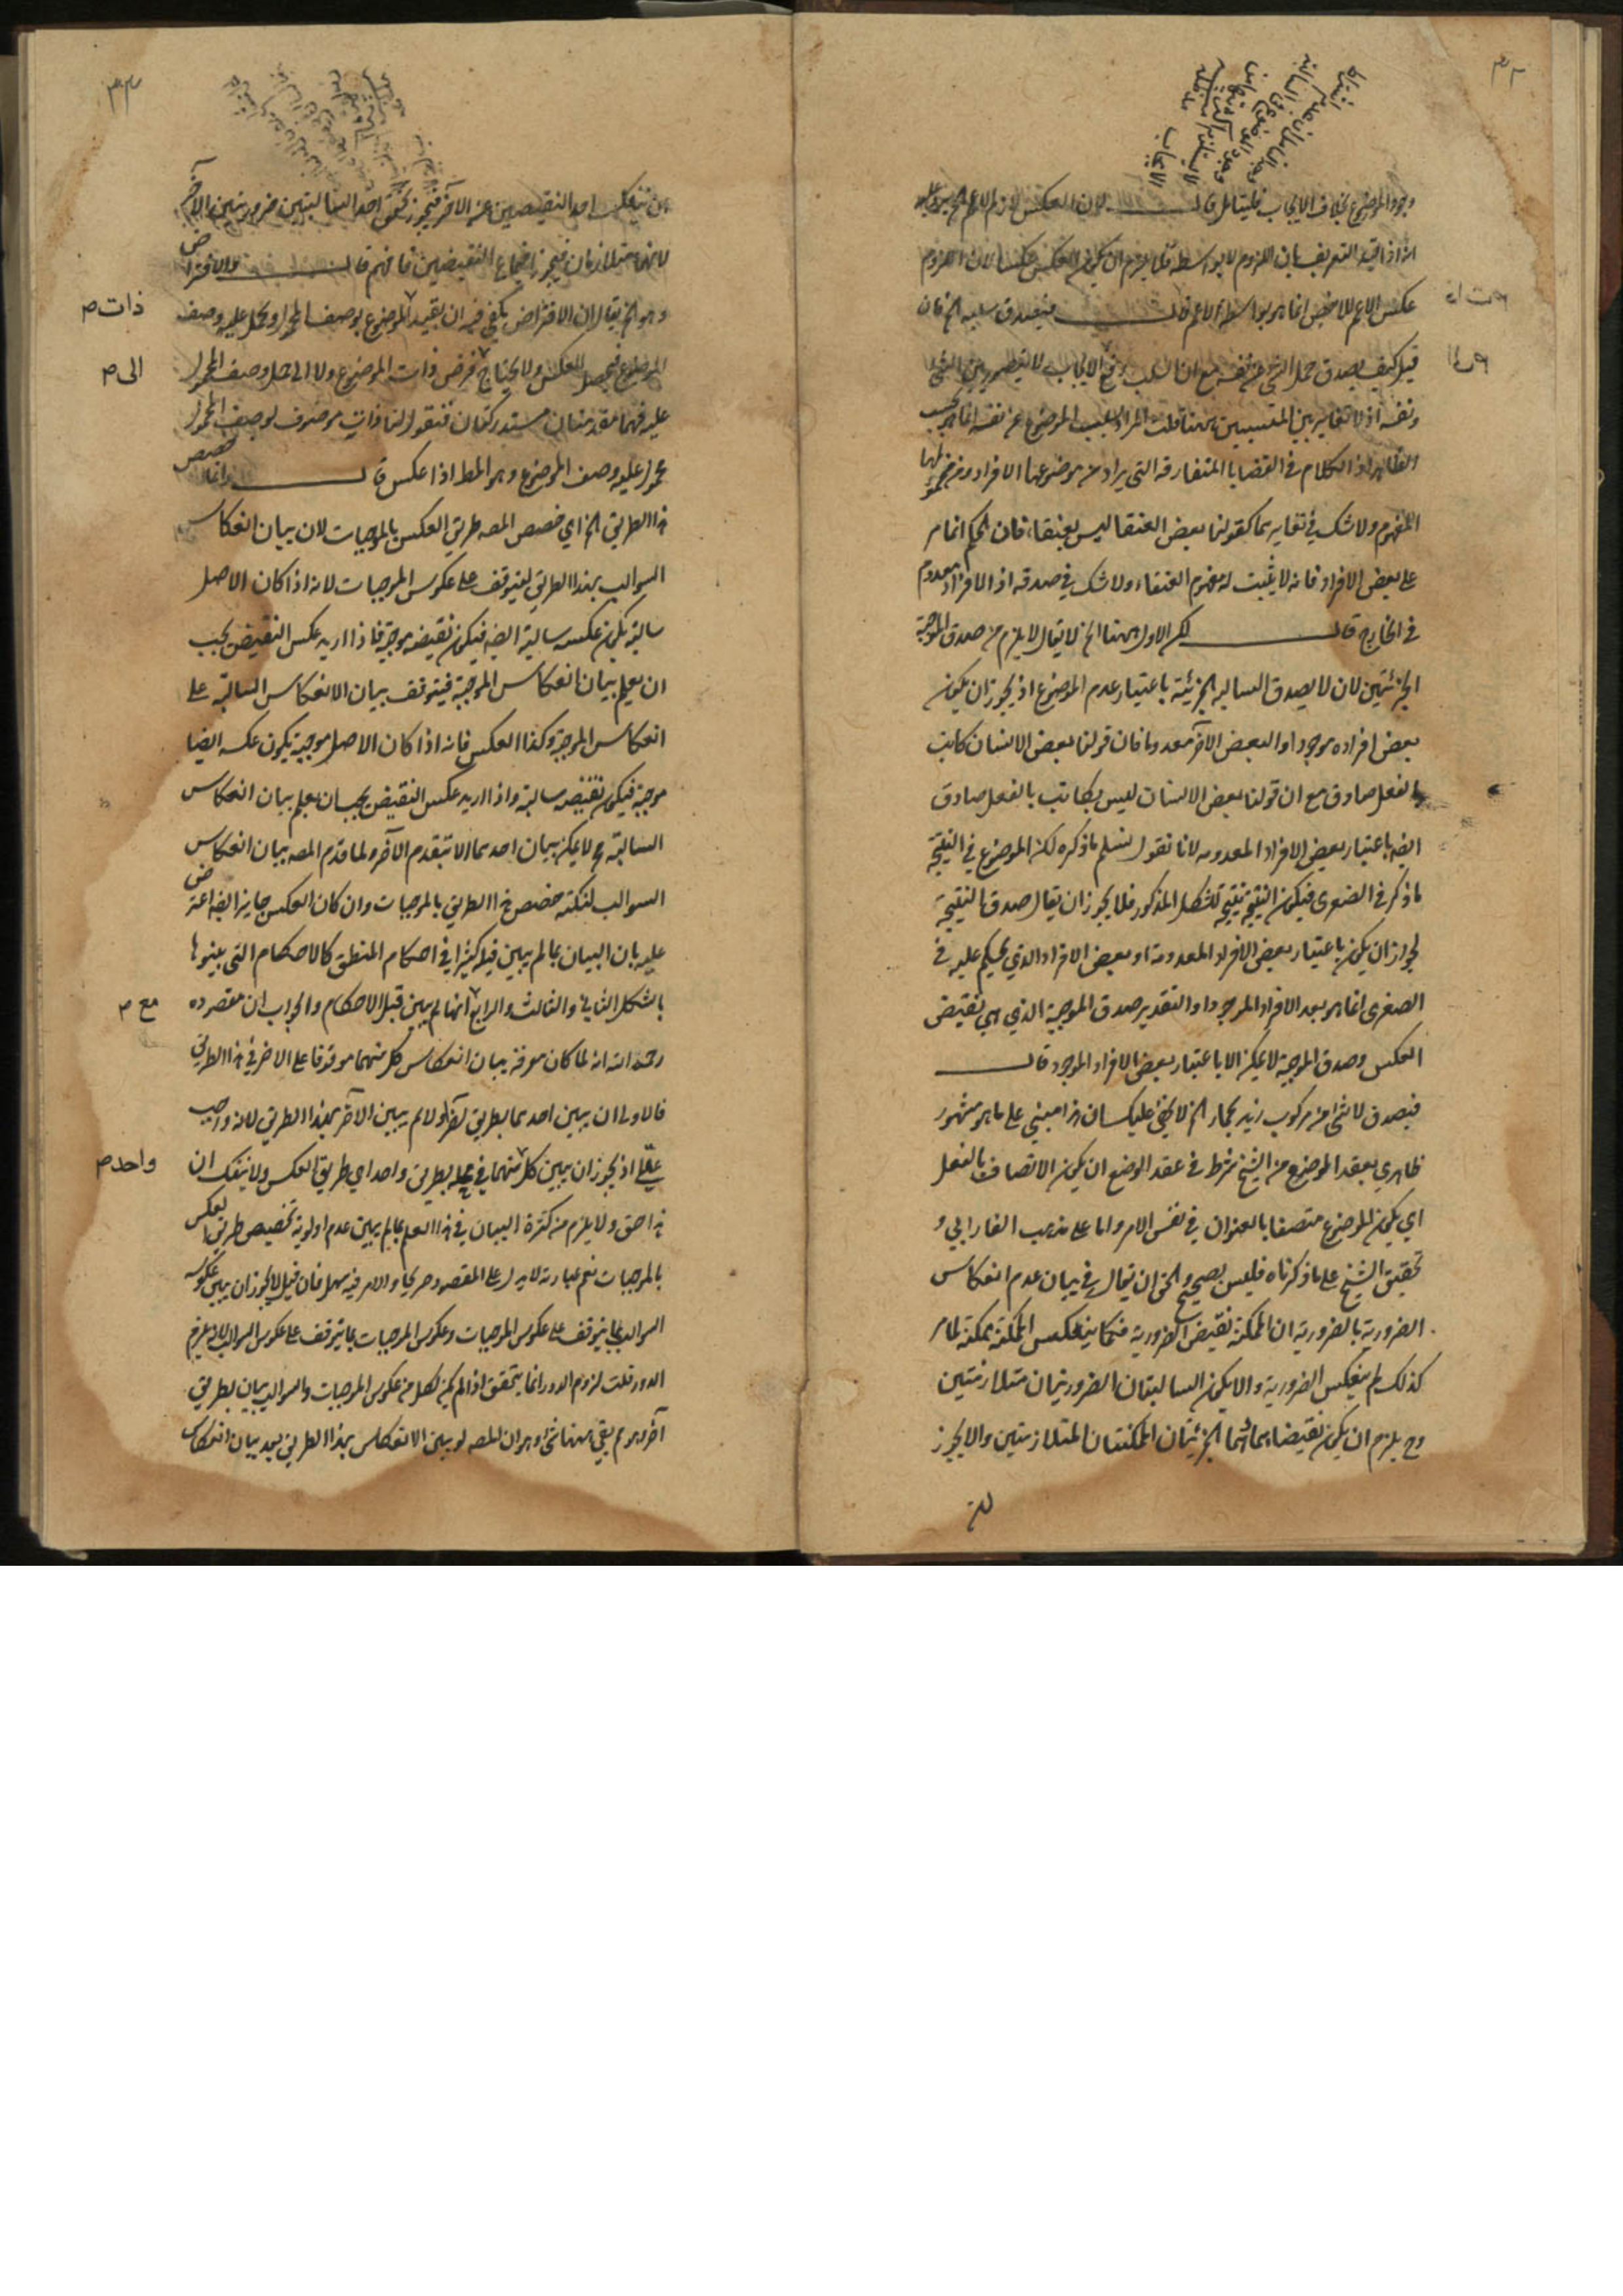 ٣٢
وجود الموضوع بخلاف الايجاب فليتامل قال لان العكس لازم للاعم الخ
انه اذا قيد التعريف بان اللزوم لا بواسطة فلا يلزم ان يكون العكس عكسا لان لزوم
عكس الاعم للاخص انما هو بواسطة الاعم قال فيصدق سلبه الخ فان
قيل كيف يصدق حمل الشي عن نفسه مع ان السلب رفع الايجاب لا يتصور بين الشي
ونفسه اذ لا تغاير بين المنتسبين ههنا قلت المراد بسلب الموضوع عن نفسه انما هو بحسب
الظاهر اذ الكلام في القضايا المتعارفة التي يراد من موضوعها الافراد ومن محمولها
المفهوم ولا شك في تغايرهما كقولنا بعض العنقا ليس بعنقا، فان الحكم انما هو
على بعض الافراد فانه لا يثبت له مفهوم العنقاء ولا شك في صدقه اذ الافراد معدوم
في الخارج قال لكن الاول ههنا الخ لا يقال لا يلزم من صدق الموجبة
الجزئيتين لان لا يصدق السالبه الجزئية باعتبار عدم الموضوع اذ يجوز ان يكون
بعض افراده موجودا والبعض الآخر معدوما فان قولنا بعض الانسان كاتب
بالفعل صادق مع ان قولنا بعض الانسان ليس بكاتب بالفعل صادق
ايضه باعتبار بعض الافراد المعدومه لانا نقول نسلم ما ذكره لكن الموضوع في النتيجة
ما ذكر في الصغرى فيكون النتيجة نتيجة للشكل المذكور فلا يجوز ان يقال صدق النتيجة
لجواز ان يكون باعتبار بعض الافراد المعدومة او بعض الافراد الذي يحكم عليه في
الصغرى انما هو بعد الافراد الموجودا والتقدير صدق الموجبة الذي هي نقيض
العكس وصدق الموجبة لا يمكن الا باعتبار بعض الافراد الموجود قال
فيصدق لا شي من مركوب زيد بحمار الخ لا يخفى عليك ان هذا مبني على ما هو مشهور
ظاهري بعقد الموضوع من الشيخ شرط في عقد الوضع ان يكون الاتصاف بالفعل
اي يكون الموضوع متصفا بالعنوان في نفس الامر واما على مذهب الفارابي و
تحقيق الشيخ على ما ذكرناه فليس بصحيح والحق ان يقال في بيان عدم انعكاس
الضرورية بالضرورية ان الممكنة نقيض الضرورية فكما ينعكس الممكنة ممكنة لما هو
كذلك لم ينعكس الضرورية والا يكون السالبتان الضروريتان متلازمتين
وح يلزم ان يكون نقيضاهما الجزئيتان الممكنتان المتلازمتين والا يجوز
٣٣
ان ينفك احد النقيضين عن الآخر فيجوز تحقق احد السالبتين ضروريتين
لانهما متلازمان فيجوز اجتماع النقيضين فافهم قال والافتراض
وهو الخ يقال ان الافتراض يكفي فيه ان يقيد الموضوع بوصف المحمول ويحمل عليه وصف
ذات م
الموضوع فيحصل العكس ولا يحتاج فرض ذات الموضوع ولا الى حمل وصف المحمول
الى م
عليه فهما مقدمتان مستدركتان فنقول لنا ذات موصوف لوصف المحمول
محمول عليه وصف الموضوع وهو المط اذا عكس قال وانما خصص
هذا الطريق الخ اي خصص المصه طريق العكس بالموجبات لان بيان انعكاس
السوالب بهذا الطريق يتوقف على عكوس الموجبات لانه اذا كان الاصل
سالبة يكون عكسه سالبة ايضه فيكون نقيضه موجبة فاذا اريد عكس النقيض يجب
ان يعلم بيان انعكاس الموجبة فيتوقف بيان الانعكاس السالبة على
انعكاس الموجبة وكذا العكس فانه اذا كان الاصل موجبة يكون عكسه ايضا
موجبة فيكون نقيضه سالبة واذا اريد عكس النقيض يجب ان يعلم بيان انعكاس
السالبة ح لا يمكن بيان احدهما الا بتقدم الآخر ولما قدم المصه بيان انعكاس
السوالب لنكتة خصص هذا الطريق بالموجبات وان كان العكس جايزا ايضه اعترض
عليه بان البيان بما لم يبين قبل كثيرا في احكام المنطق كالاحكام التي بينوها
بالشكل الثاني والثالث والرابع انها لم يبين قبل الاحكام والجواب ان مقصوده
مع م
رحمه الله انه لما كان معرفة بيان انعكاس كل منهما موقوفا على الاخر في هذا الطريق
فالاولى ان يبين احدهما بطريق آخر اولا ثم يبين الآخر بهذا الطريق لانه واجب
عقلي اذ يجوز ان يبين كل منهما في محله بطريق واحد اي طريق العكس ولا ينفك ان
واحد م
هذا حق ولا يلزم من كثرة البيان في هذا العلم بما لم يبين عدم اولوية تخصيص طريق العكس
بالموجبات نعم عبارته لا يدل على المقصود صريحا والامر فيه سهل فان قيل لا يجوز ان يبين عكوس
السوالب بما يتوقف على عكوس الموجبات وعكوس الموجبات بما يتوقف على عكوس السوالب والا يلزم
الدور قلت لزوم الدور انما يتحقق اذا لم يكن لكل من عكوس الموجبات والسوالب بيان بطريق
آخر وهو مم بقي ههنا شئ وهو ان المصه لو بين الانعكاس بهذا الطريق بعد بيان انعكاس